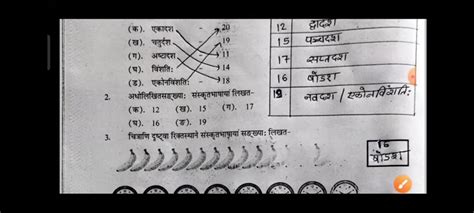 (क). एकादश 20
(ख). चतुर्दश 19
(ग). अष्टादश 11
(घ). विंशति: 14
(ङ). एकोनविंशति: 18
2. अधोलिखितसङ्ख्या: संस्कृतभाषायां लिखत-
(क). 12 (ख). 15 (ग). 17
(घ). 16 (ङ). 19
3. चित्राणि दृष्ट्वा रिक्तस्थाने संस्कृतभाषायां सङ्ख्या: लिखत-
12 द्वादश
15 पञ्चदश
17 सप्तदश
16 षोडश
19 नवदश / एकोनविंशति:
16
षोडश